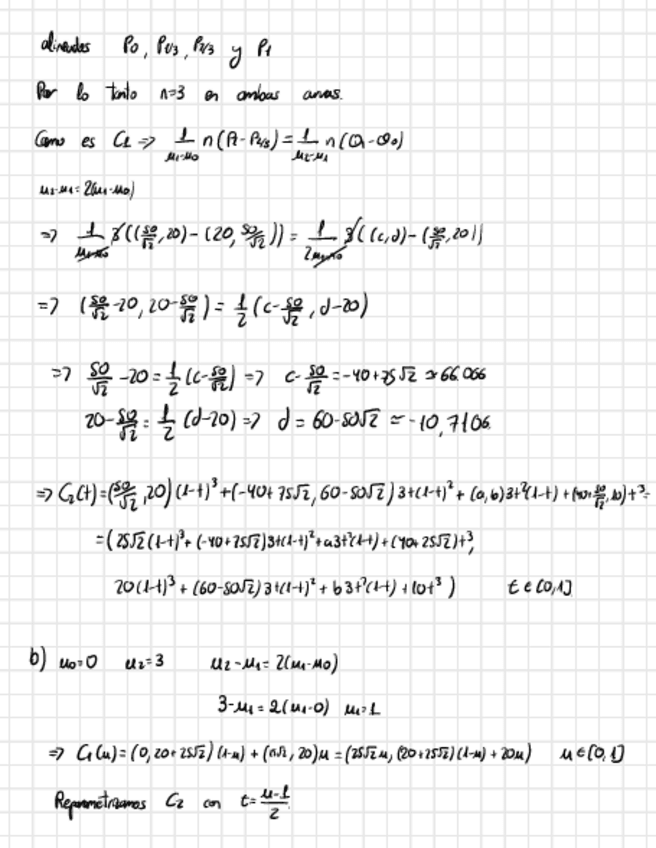 alineados P₀, P₁/₃, P₂/₃ y P₁
Por lo tanto n=3 en ambas curvas.
Como es C1 => 1/(μ₁-μ₀) n(P₁-P₂/₃) = 1/(μ₂-μ₁) n(Q₁-Q₀)
μ₂-μ₁ = 2(μ₁-μ₀)
=> 1/(μ₁-μ₀) 3((50/√2, 20) - (20, 50/√2)) = 1/(2(μ₁-μ₀)) 3((c,d) - (50/√2, 20))
=> (50/√2 - 20, 20 - 50/√2) = 1/2 (c - 50/√2, d-20)
=> 50/√2 - 20 = 1/2 (c - 50/√2) => c - 50/√2 = -40+75√2 ≃ 66.066
20 - 50/√2 = 1/2 (d-20) => d = 60-50√2 ≃ -10,7106
=> C₂(t) = (50/√2, 20)(1-t)³ + (-40+75√2, 60-50√2)3t(1-t)² + (a,b)3t²(1-t) + (40+50/√2, 10)t³ =
= (25√2(1-t)³ + (-40+75√2)3t(1-t)² + a3t²(1-t) + (40+25√2)t³,
20(1-t)³ + (60-50√2)3t(1-t)² + b3t²(1-t) + 10t³) t ∈ [0,1]
b) μ₀=0 μ₂=3 μ₂-μ₁ = 2(μ₁-μ₀)
3-μ₁ = 2(μ₁-0) μ₁=1
=> C₁(μ) = (0, 20+25√2)(1-μ) + (25√2, 20)μ = (25√2μ, (20+25√2)(1-μ) + 20μ) μ ∈ [0,1]
Reparametrizamos C₂ con t = (μ-1)/2